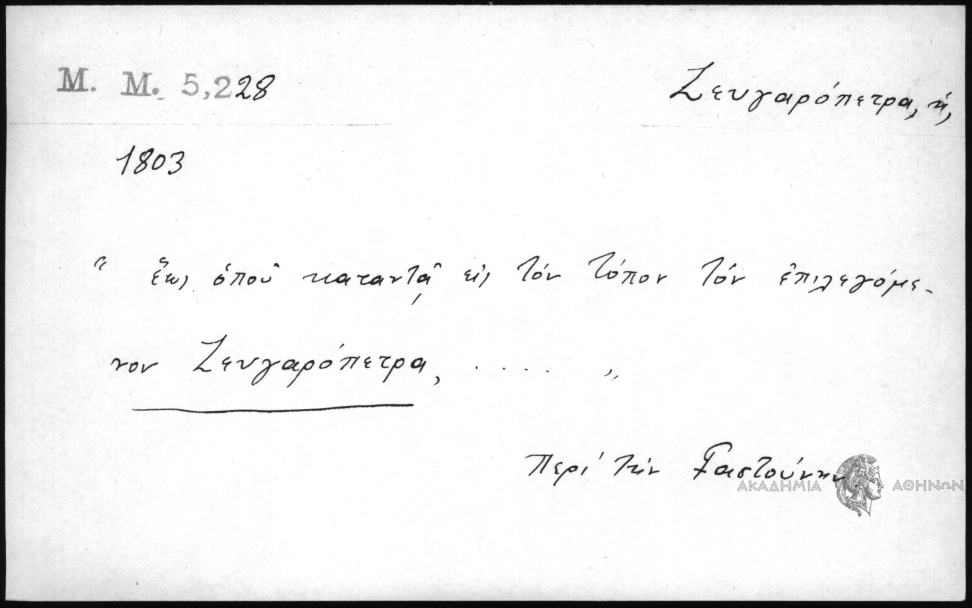 Μ. Μ. 5,228
Ζευγαρόπετρα, ἡ,
1803
“ ἕως ὁποῦ καταντᾷ εἰς τόν τόπον τόν ἐπιλεγόμε-
νον Ζευγαρόπετρα, . . . . ”
Περί τήν Γαστούνην
ΑΚΑΔΗΜΙΑ ΑΘΗΝΩΝ